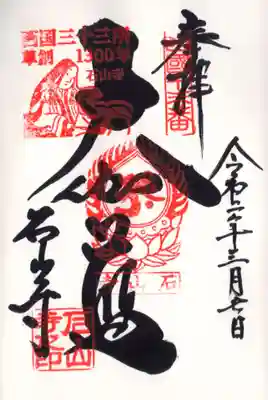 奉拝
西國十三番
令和二年三月七日
西国三十三所
草創 1300年
石山寺
大伽藍
石山寺
石山寺印